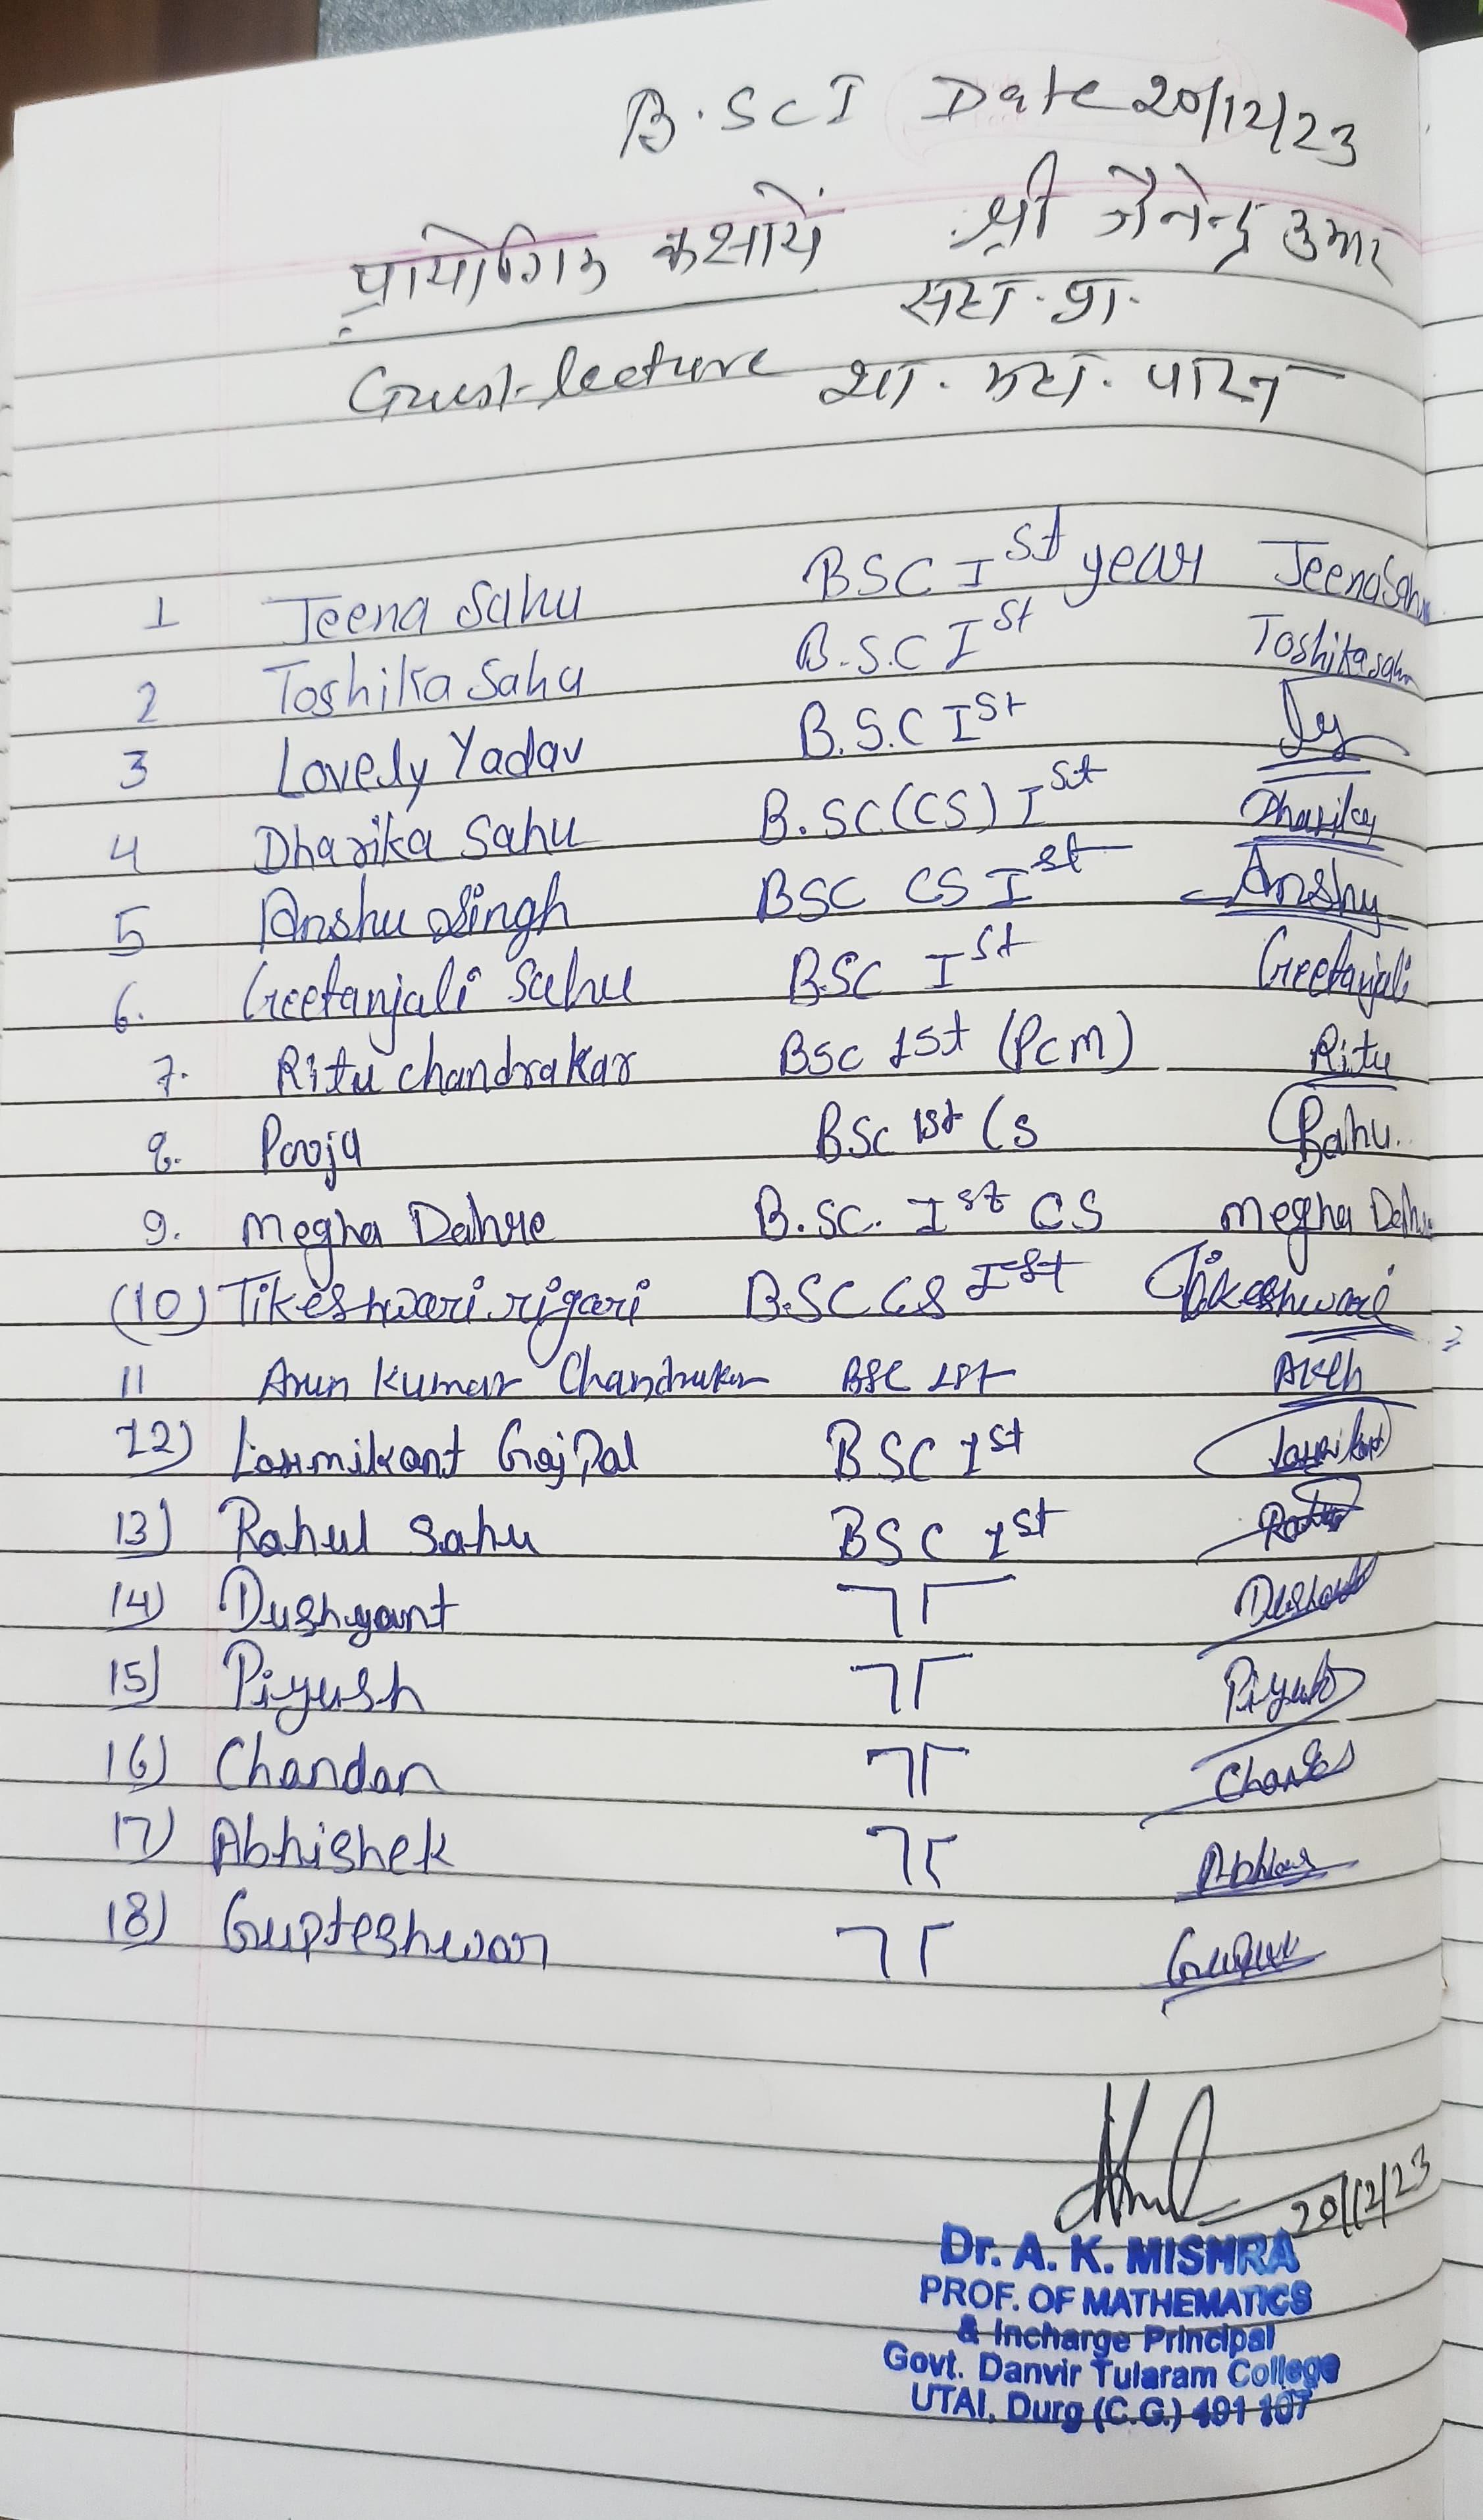 B.SC I Date 20/12/23
प्रायोगिक कक्षायें श्री जैनेन्द्र कुमार
सहा. प्रा.
Guest-lecture शा. महा. पाटन
1 Jeena Sahu BSC Ist year Jeena Sahu
2 Toshika Sahu B.S.C Ist Toshika sahu
3 Lovely Yadav B.S.C Ist
4 Dharika Sahu B.SC.(CS) Ist Dharika
5 Anshu Singh BSC CS Ist Anshu
6. Geetanjali Sahu B.SC Ist Geetanjali
7. Ritu chandrakar BSC 1st (PCM) Ritu
8. Pooja BSc 1st CS Sahu..
9. Megha Dahre B.SC. Ist CS Megha Dahre
(10) Tikeshwari rigari B.SC CS Ist Tikeshwari
11 Arun Kumar Chandrakar BSC 1st
12) Laxmikant Gajpal BSC 1st Laxmikant
13) Rahul Sahu BSC 1st Rahul
14) Dushyant 7 Γ
15) Piyush 7 Γ Piyush
16) Chandan 7 Γ
17) Abhishek 7 Γ
18) Gupteshwar 7 Γ
20/12/23
Dr. A. K. MISHRA
PROF. OF MATHEMATICS
& Incharge Principal
Govt. Danvir Tularam College
UTAI, Durg (C.G.) 491 107